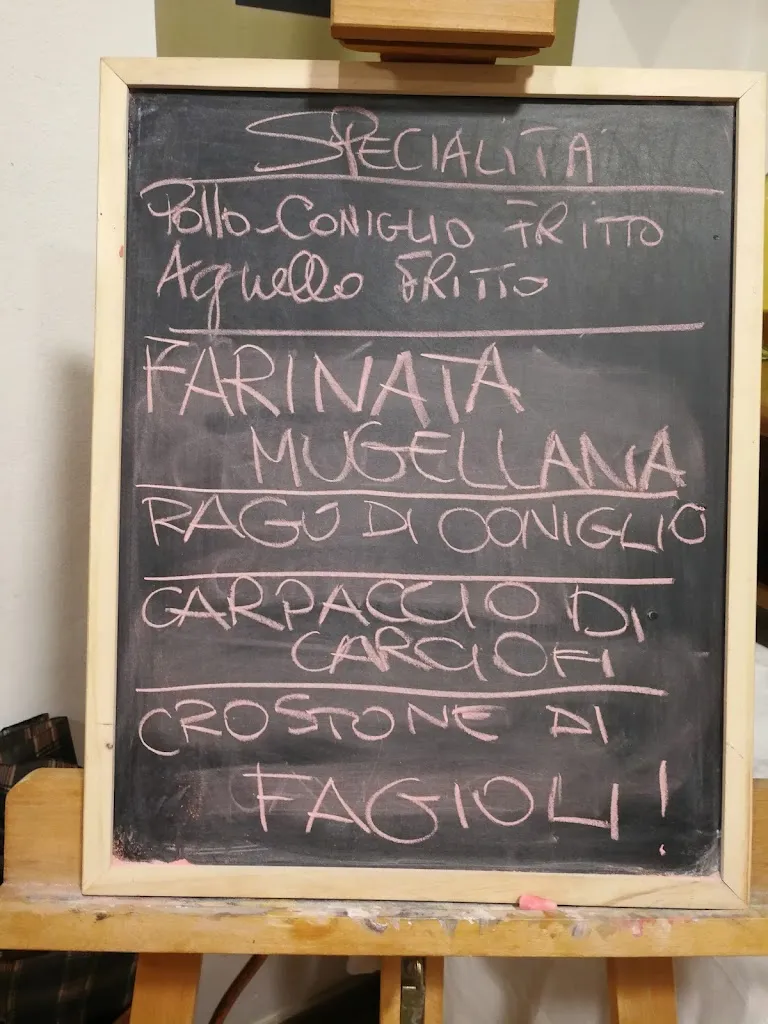 SPECIALITÀ
Pollo-CONIGLIO FRITTO
Agnello FRITTO
FARINATA
MUGELLANA
RAGÙ DI CONIGLIO
CARPACCIO DI
CARCIOFI
CROSTONE DI
FAGIOLI!